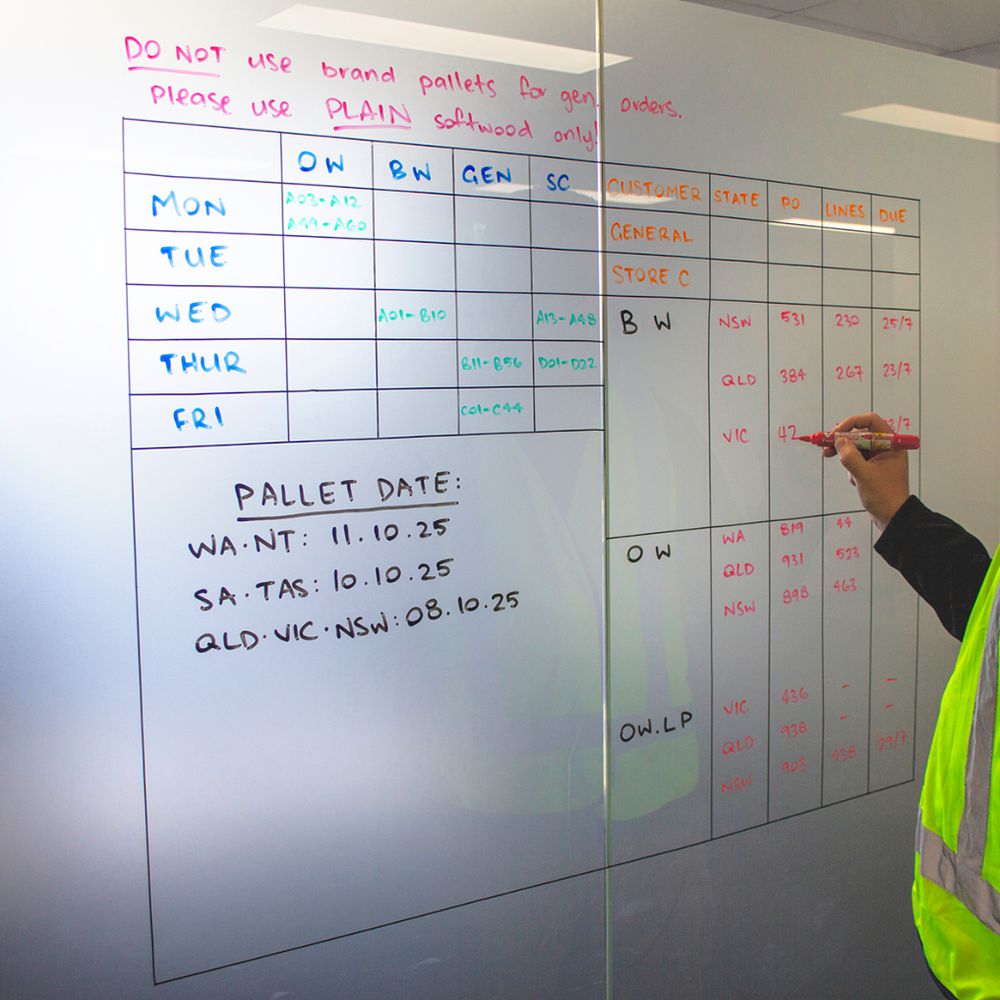 DO NOT use brand pallets for gen. orders.
Please use PLAIN softwood only!
OW BW GEN SC
MON A03-A12
A49-A60
TUE
WED A01-B10 A13-A48
THUR B11-B56 D01-D22
FRI C01-C44
PALLET DATE:
WA.NT: 11.10.25
SA.TAS: 10.10.25
QLD.VIC.NSW: 08.10.25
CUSTOMER STATE PO LINES DUE
GENERAL
STORE C
BW NSW 531 230 25/7
QLD 384 267 23/7
VIC 42
OW WA 819 44
QLD 931 523
NSW 898 463
OW.LP VIC 436 - -
QLD 938 - -
NSW 903 438 29/7